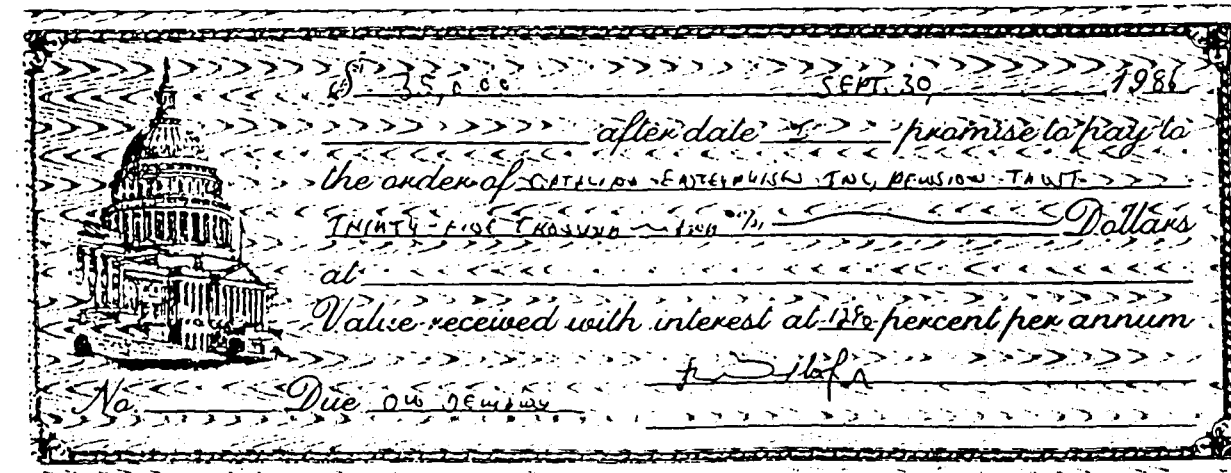 $ 35,000 SEPT. 30, 1986
after date I promise to pay to
the order of ENTERPRISES INC, PENSION TRUST
THIRTY-FIVE THOUSAND Dollars
at
Value received with interest at 12% percent per annum
No. Due ON DEMAND